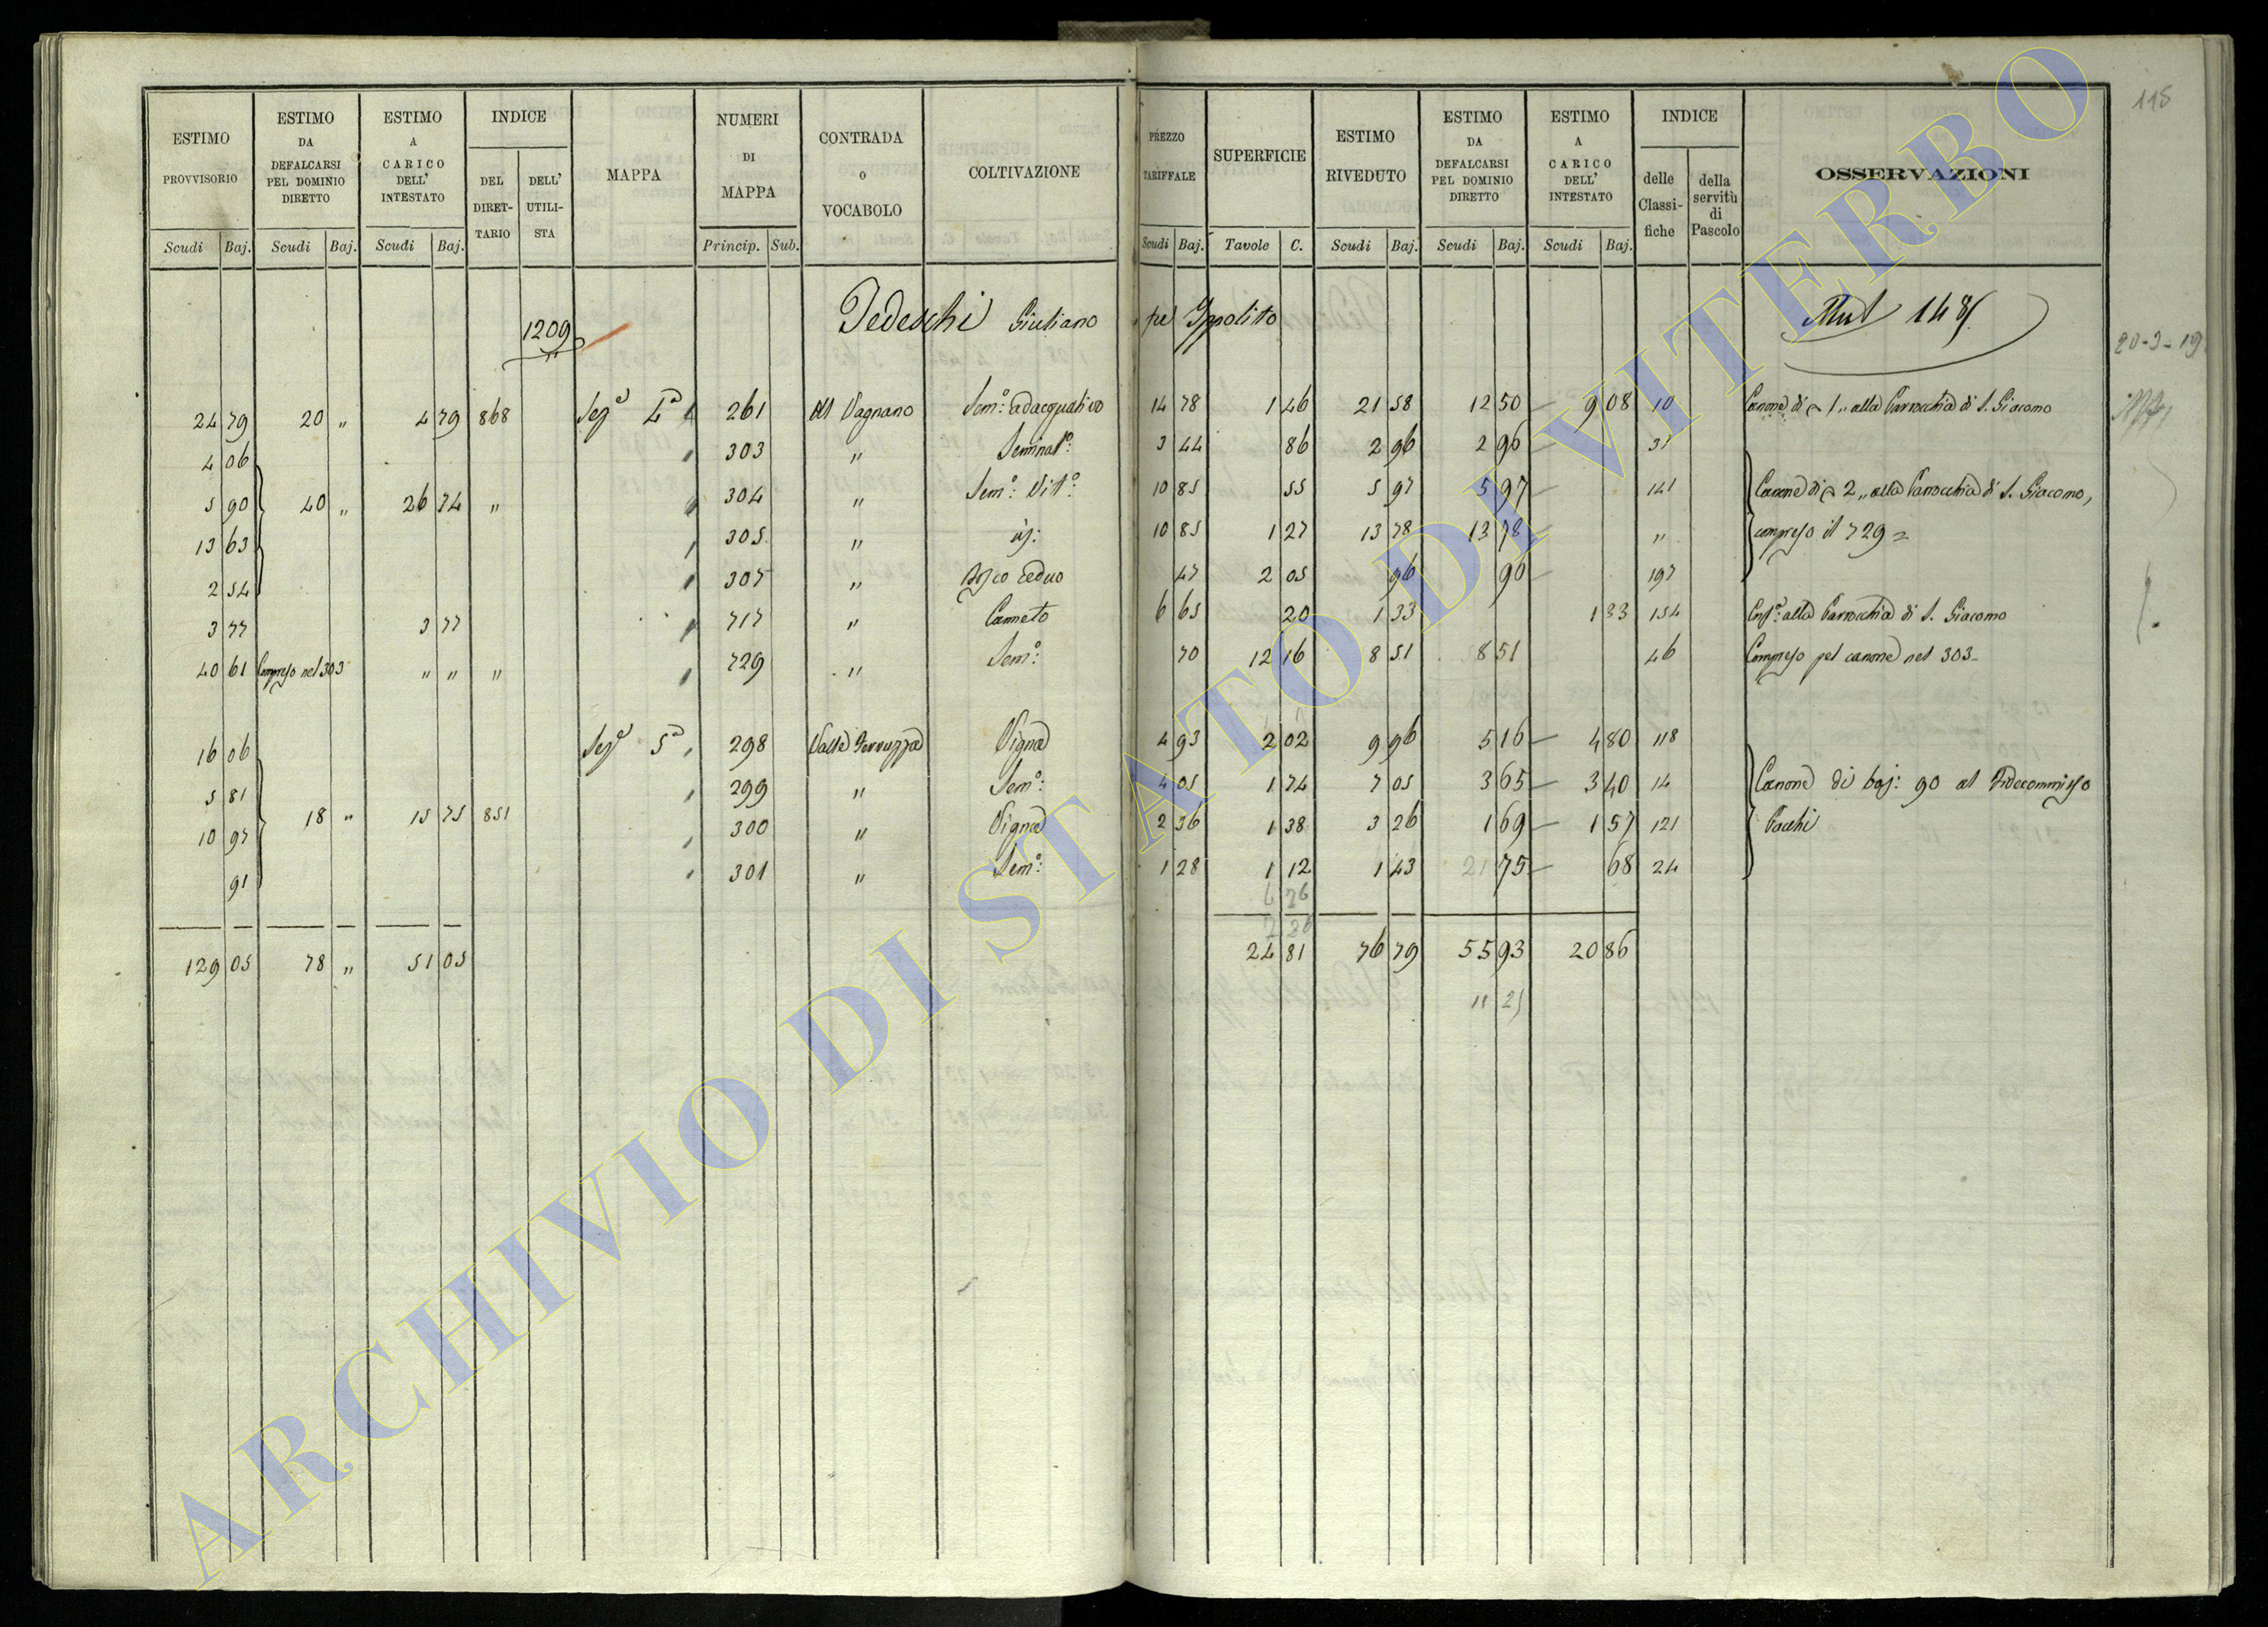 118
ESTIMO PROVVISORIO Scudi Baj.
ESTIMO DA DEFALCARSI PEL DOMINIO DIRETTO Scudi Baj.
ESTIMO A CARICO DELL' INTESTATO Scudi Baj.
INDICE DEL DIRET-TARIO DELL' UTILI-STA
MAPPA
NUMERI DI MAPPA Princip. Sub.
CONTRADA O VOCABOLO
COLTIVAZIONE
PREZZO TARIFFALE Scudi Baj.
SUPERFICIE Tavole C.
ESTIMO RIVEDUTO Scudi Baj.
ESTIMO DA DEFALCARSI PEL DOMINIO DIRETTO Scudi Baj.
ESTIMO A CARICO DELL' INTESTATO Scudi Baj.
INDICE delle Classi-fiche della servitù di Pascolo
OSSERVAZIONI
1209 Tedeschi Giuliano fu Ippolito Mut 148
20-3-19
24 79 20 „ 4 79 868 Sez.e 4a 261 Vagnano Sem.o adacquativo 14 78 1 46 21 58 12 50 9 08 10 Canone di 1 „ alla Parrocchia di S. Giacomo
4 06 303 „ Seminat.o 3 44 86 2 96 2 96 31
5 90 40 „ 26 74 „ 304 „ Sem.o Vit.o 10 85 55 5 97 5 97 141 Canone di 2 „ alla Parrocchia di S. Giacomo,
13 63 305 „ 10 85 1 27 13 78 13 78 „ compreso il 729
2 54 307 „ Bosco ceduo 47 2 05 96 90 197
3 77 3 77 717 „ Canneto 6 65 20 1 33 1 33 154 alla Parrocchia di S. Giacomo
40 61 Compreso nel 303 „ „ „ 729 „ Sem.o 70 12 16 8 51 8 51 46 Compreso pel canone nel 303
16 06 Sez.e 5a 298 Valle Vigna 4 93 2 02 9 96 5 16 4 80 118
5 81 299 „ Sem.o 4 05 1 74 7 05 3 65 3 40 14 Canone di baj: 90 al Fidecommisso
10 97 18 „ 15 75 851 300 „ Vigna 2 36 1 38 3 26 1 69 1 57 121 Pacchi
91 301 „ Sem.o 1 28 1 12 1 43 75 68 24
129 05 78 „ 51 05 24 81 76 79 55 93 20 86
11 25
ARCHIVIO DI STATO DI VITERBO